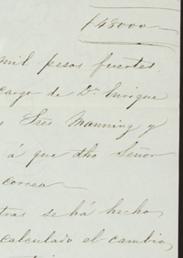 148000
mil pesos fuertes
cargo de Dn Enrique
Sres Manning y
á que dho Señor
correa
se há hecho
calculado el cambio